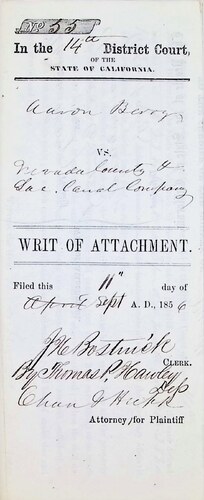 No 55
In the 14th District Court,
OF THE
STATE OF CALIFORNIA.
Aaron Berry
VS.
Nevada County &
Sac. Canal Company
WRIT OF ATTACHMENT.
Filed this 11" day of
April Sept A. D., 1856
J H Bostwick
CLERK.
By Thomas P. Hawley
Dep
Attorney for Plaintiff